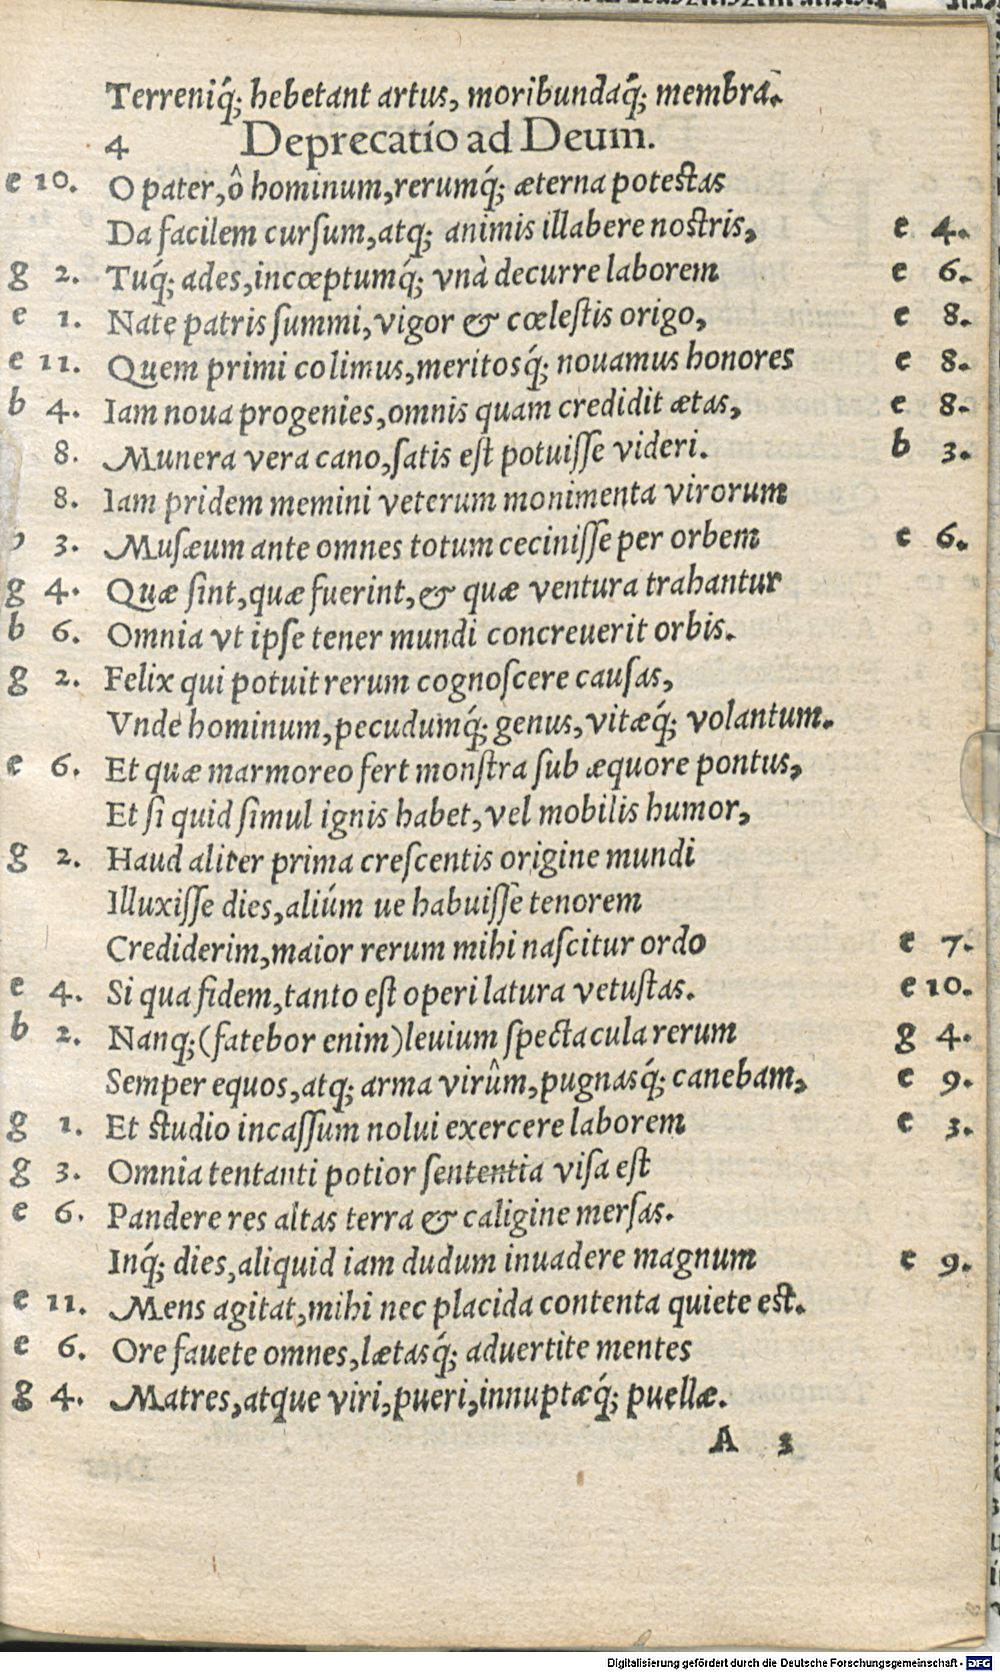 Terreniq́; hebetant artus, moribundaq́; membra.
4 Deprecatio ad Deum.
e 10. O pater, ô hominum, rerumq́; æterna potestas
Da facilem curſum, atq; animis illabere nostris, e 4.
g 2. Tuq́; ades, incœptumq́; vnà decurre laborem e 6.
e 1. Nate patris ſummi, vigor & cœleſtis origo, e 8.
e 11. Quem primi colimus, meritosq́; nouamus honores e 8.
b 4. Iam noua progenies, omnis quam credidit ætas, e 8.
8. Munera vera cano, ſatis eſt potuiſſe videri. b 3.
8. Iam pridem memini veterum monimenta virorum
b 3. Muſæum ante omnes totum ceciniſſe per orbem e 6.
g 4. Quæ ſint, quæ fuerint, & quæ ventura trahantur
b 6. Omnia vt ipſe tener mundi concreuerit orbis.
g 2. Felix qui potuit rerum cognoſcere cauſas,
Vnde hominum, pecudumq́; genus, vitæq́; volantum.
e 6. Et quæ marmoreo fert monſtra ſub æquore pontus,
Et ſi quid ſimul ignis habet, vel mobilis humor,
g 2. Haud aliter prima creſcentis origine mundi
Illuxiſſe dies, aliúm ue habuiſſe tenorem
Crediderim, maior rerum mihi naſcitur ordo e 7.
e 4. Si qua fidem, tanto eſt operi latura vetuſtas. e 10.
b 2. Nanq; (fatebor enim) leuium ſpectacula rerum g 4.
Semper equos, atq; arma virûm, pugnasq́; canebam, e 9.
g 1. Et ſtudio incaſſum nolui exercere laborem e 3.
g 3. Omnia tentanti potior ſententia viſa eſt
e 6. Pandere res altas terra & caligine merſas.
Inq́; dies, aliquid iam dudum inuadere magnum e 9.
e 11. Mens agitat, mihi nec placida contenta quiete eſt.
e 6. Ore fauete omnes, lætasq́; aduertite mentes
g 4. Matres, atque viri, pueri, innuptæq́; puellæ.
A 3
Digitalisierung gefördert durch die Deutsche Forschungsgemeinschaft - DFG